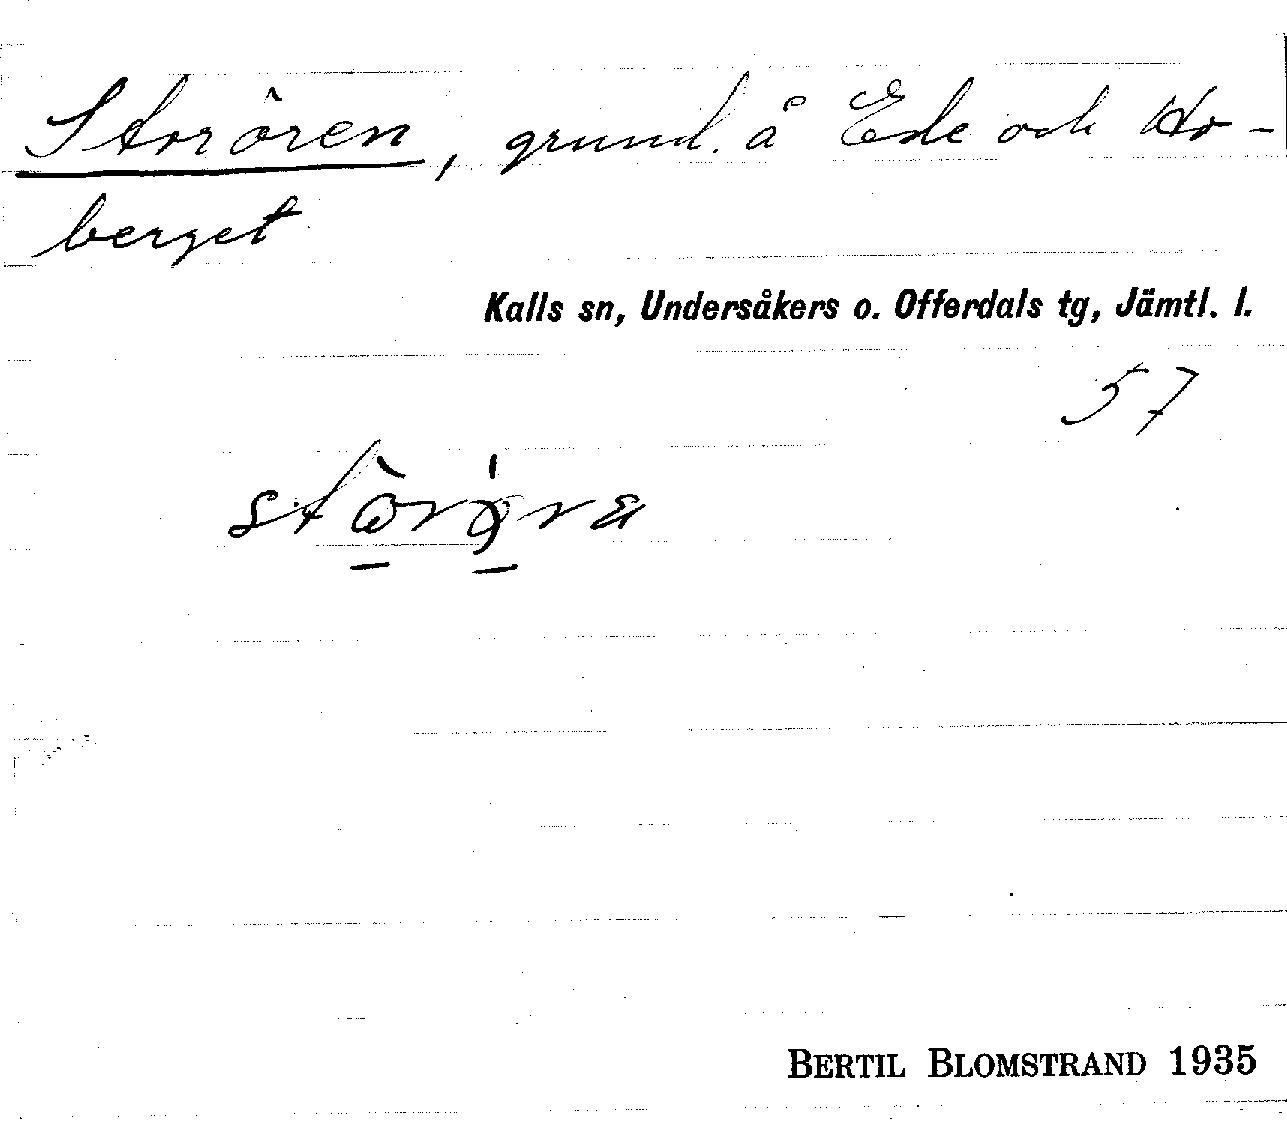 Storören, grund. å Ede och Ho-
berget
Kalls sn, Undersåkers o. Offerdals tg, Jämtl. l.
57
BERTIL BLOMSTRAND 1935